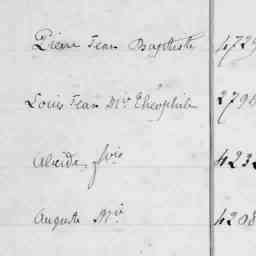 Pierre Jean Baptiste 4729
Louis Jean Mie Théophile 2790
Alcide fois 4232
Auguste Mie 4208